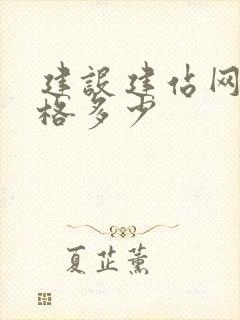 建設建佔网
格多少
夏芷薰